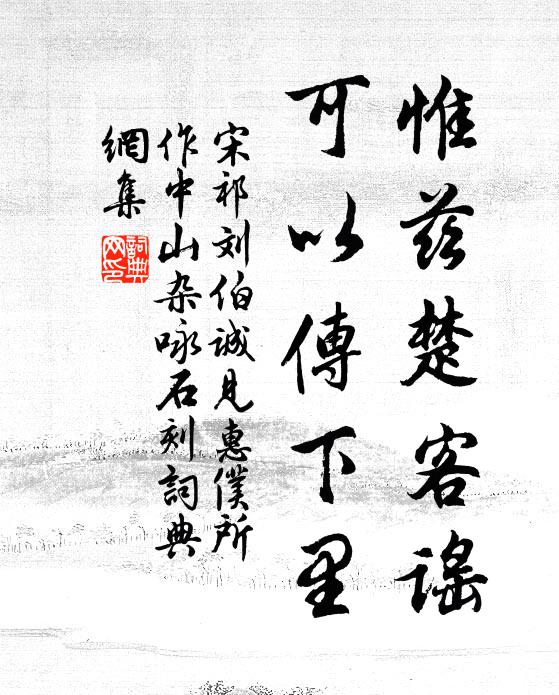 惟茲楚客謠
可以傳下里
宋祁刘伯誠見惠僕所
作中山杂咏石刻詞典
網集
詞典
网印